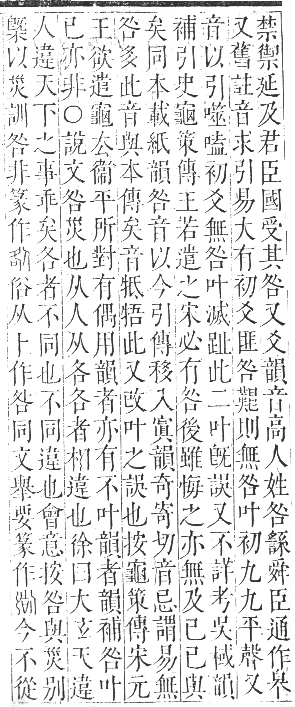 禁禦延及君臣國受其咎又爻韻音高人姓咎繇舜臣通作皋
又舊註音求引易大有初爻匪咎艱則無咎叶初九九平聲又
音以引噬嗑初爻無咎叶滅趾此二叶旣誤又不詳考吳棫韻
補引史龜策傳王若遣之宋必有咎後雖悔之亦無及已已與
矣同本載紙韻咎音以今引傳移入寘韻奇寄切音忌謂易無
咎多此音與本傳矣音牴牾此又改叶之誤也按龜策傳宋元
王欲遣龜去衞平所對有偶用韻者亦有不叶韻者韻補咎叶
已亦非〇說文咎災也从人从各各者相違也徐曰大玄天違
人違天下之事乖矣各者不同也不同違也會意按咎與災別
槩以災訓咎非篆作俗从卜作咎同文舉要篆作今不從